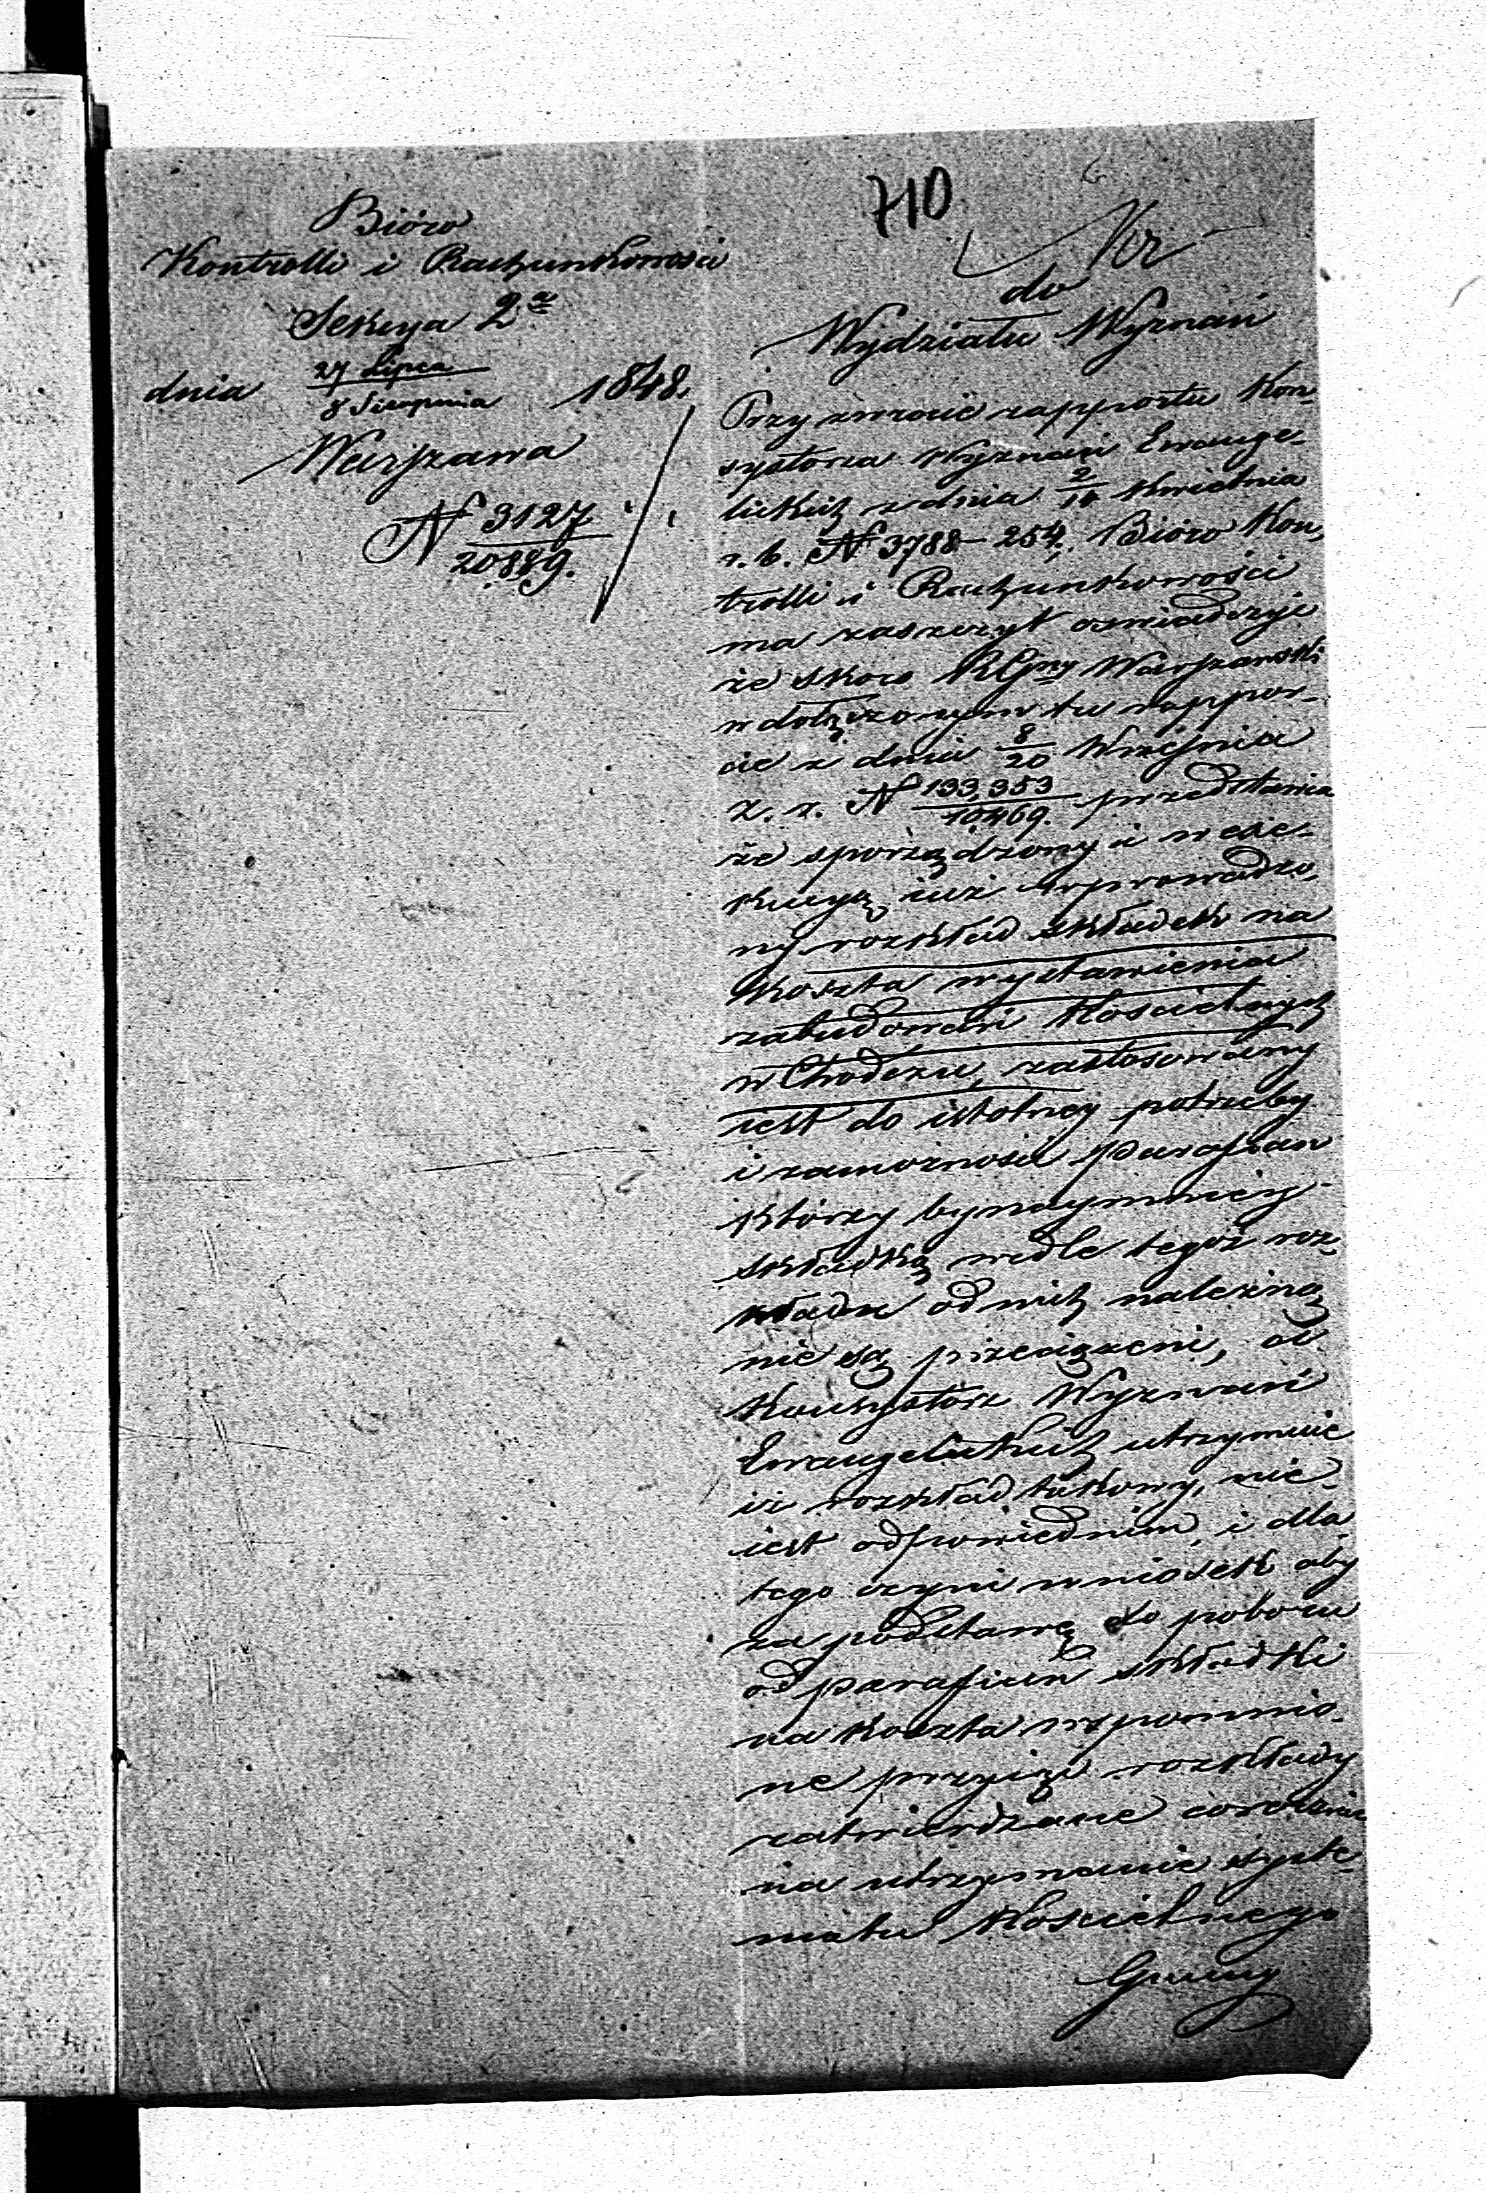 710
Bióro
Kontrolli i Rachunkowości
Sekcya 2a
dnia 27 Lipca / 8 Sierpnia 1848.
Warszawa
N 3127 / 20,889.
do
Wydziału Wyznań
Przy zwrocie rapportu Kon-
systorza Wyznań Ewange-
lickich z dnia 2/14 Kwietnia
r. b. N 3788–254. Bióro Kon-
trolli i Rachunkowości
ma zaszczyt oświadczyć
że skoro RGny Warszawski
w dołączonym tu rappor-
cie z dnia 8/20 Września
z. r. N 133,353 / 10469. przedstawia
że sporządzony i w exe-
kucyą iuż wprowadzo-
ny rozkład składek na
koszta wystawienia
zabudowań Kościelnych
w Chodczu, zastosowany
iest do istotney potrzeby
i zamożności Parafian
którzy bynaymniey
składką wedle tegoż roz-
kładu od nich należną
nie są przeciążeni, a
Konsystorz Wyznań
Ewangelickich utrzymuie
iż rozkład takowy, nie-
iest odpowiednim, i dla
tego czyni wniosek aby
za podstawę do poboru
od parafian składki
na koszta wspomnio-
ne przyiąć rozkłady
zatwierdzane corocznie
na utrzymanie syste-
matu Kościelnego
Gminy